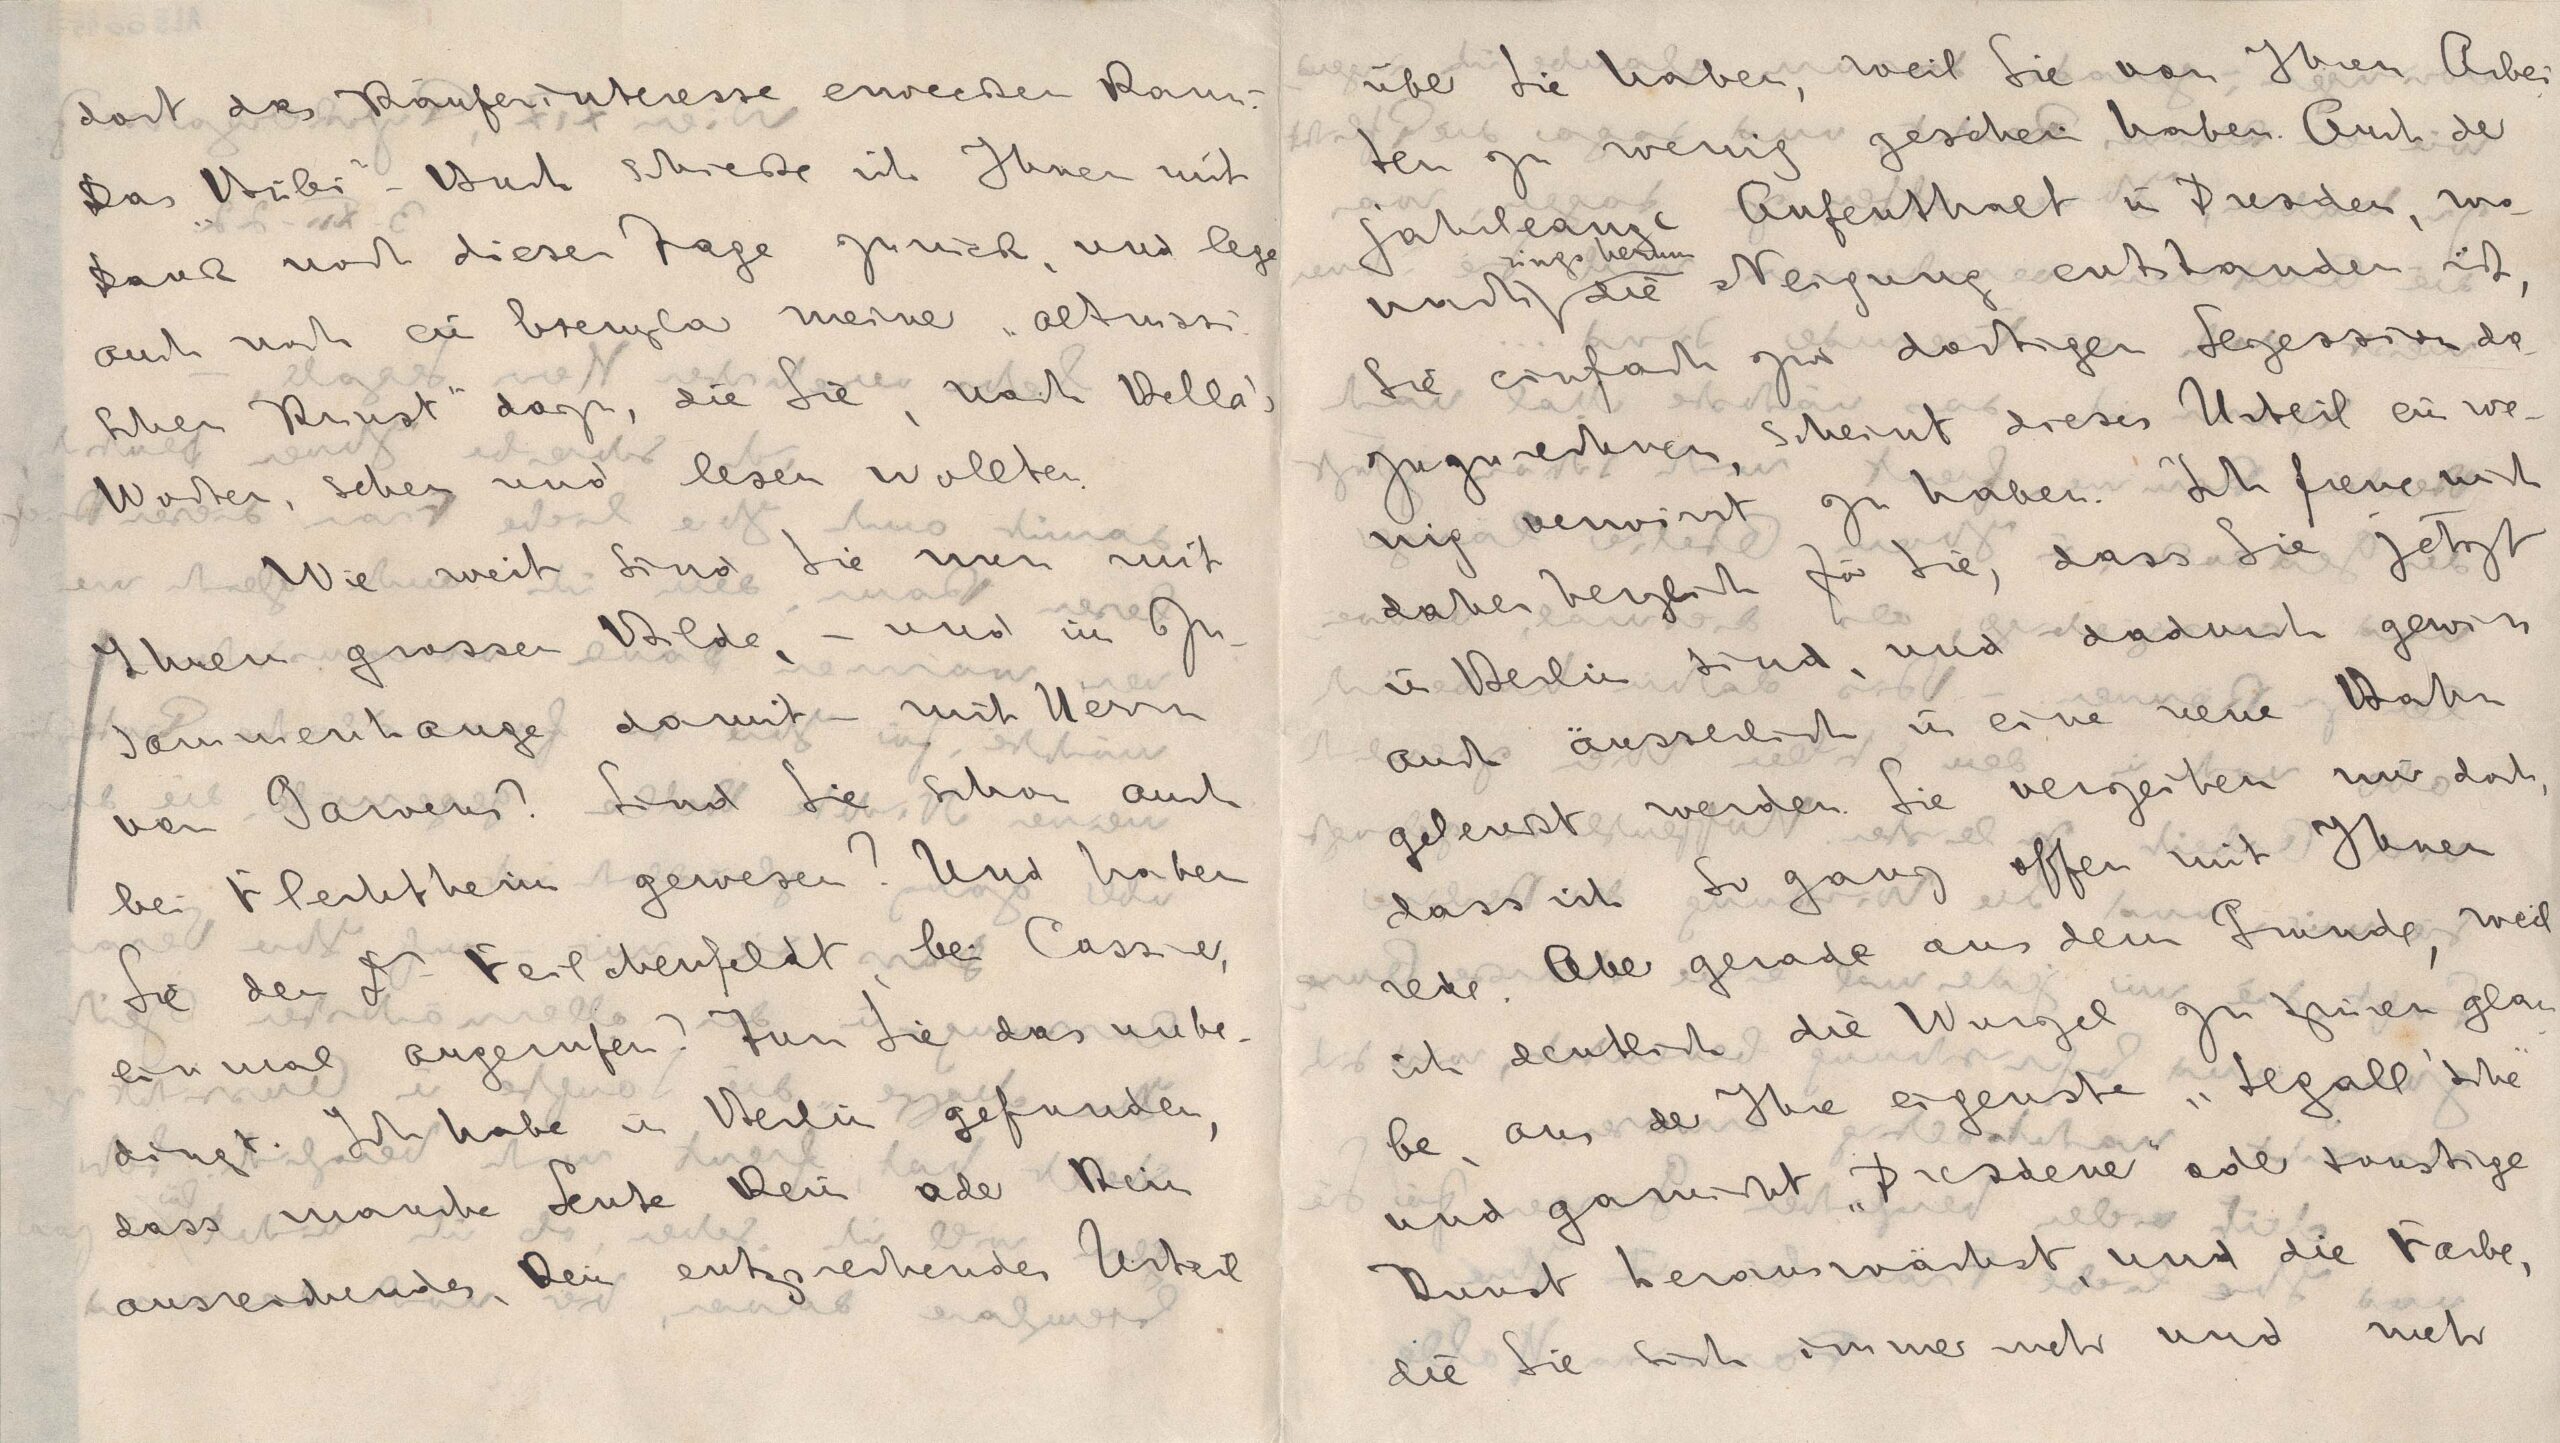 dort das Käuferinteresse erwecken kann.
Das „Bübi“-Buch schicke ich Ihnen mit
Dank noch dieser Tage zurück, und lege
auch noch ein Exemplar meine „altrussi-
schen Kunst“ dazu, die Sie, nach Bella's
Worten, sehen und lesen wollten.
Wie weit sind Sie nun mit
Ihrem grossen Bilde, - und im Zu-
sammenhange damit - mit Herrn
von Garvens? Sind Sie schon auch
bei Flechtheim gewesen? Und haben
Sie den Dr Feilchenfeldt, bei Cassirer,
einmal angerufen? Tun Sie das unbe-
dingt. Ich habe in Berlin gefunden,
dass manche Leute kein oder kein
ausreichendes, kein entsprechendes Urteil
über Sie haben, weil Sie von Ihren Arbei
ten zu wenig gesehen haben. Auch der
jahrelange Aufenthalt in Dresden, wo-
nach rings herum die Neigung entstanden ist,
Sie einfach zur dortigen Sezession da-
zuzurechnen, scheint dieses Urteil ein we-
nig verwirrt zu haben. Ich freue mich
daher herzlich für Sie, dass Sie jetzt
in Berlin sind, und dadurch gewiss
auch äusserlich in eine neue Bahn
gelenkt werden. Sie verzeihen mir doch,
dass ich so ganz offen mit Ihnen
rede. Aber gerade aus dem Grunde, weil
ich deutlich die Wurzel zu spüren glau
be, aus der Ihre eigenste „Segall'sche“
und garnicht „Dresdener“ oder sonstige
Kunst herauswächst, und die Farbe,
die Sie sich immer mehr und mehr